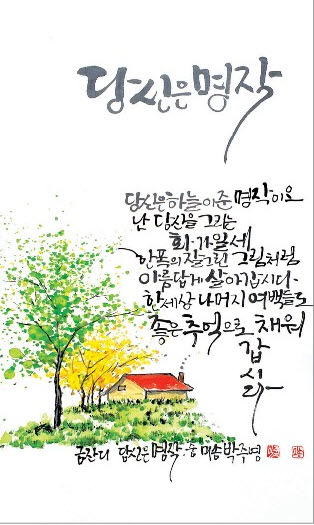 당신은 명작
당신은 하늘이 준 명작이오
난 당신을 그리는
화가일세
한폭의 잘 그린 그림처럼
아름답게 살아갑시다.
한세상 나머지 여백들도
좋은 추억으로 채워
갑시다
금잔디 당신은 명작 中 미송 박주영